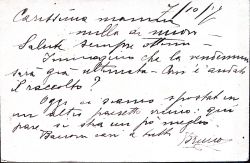 7/10/17
Carissima mamma
nulla di nuovo
Salute sempre ottima
Immagino che la vendemmia
sarà già ultimata. Com'è andato
il raccolto?
Oggi ci siamo spostati in
un altro paesetto vicino: qui
pare si stia un po' meglio
Bacioni cari a tutti Bruno